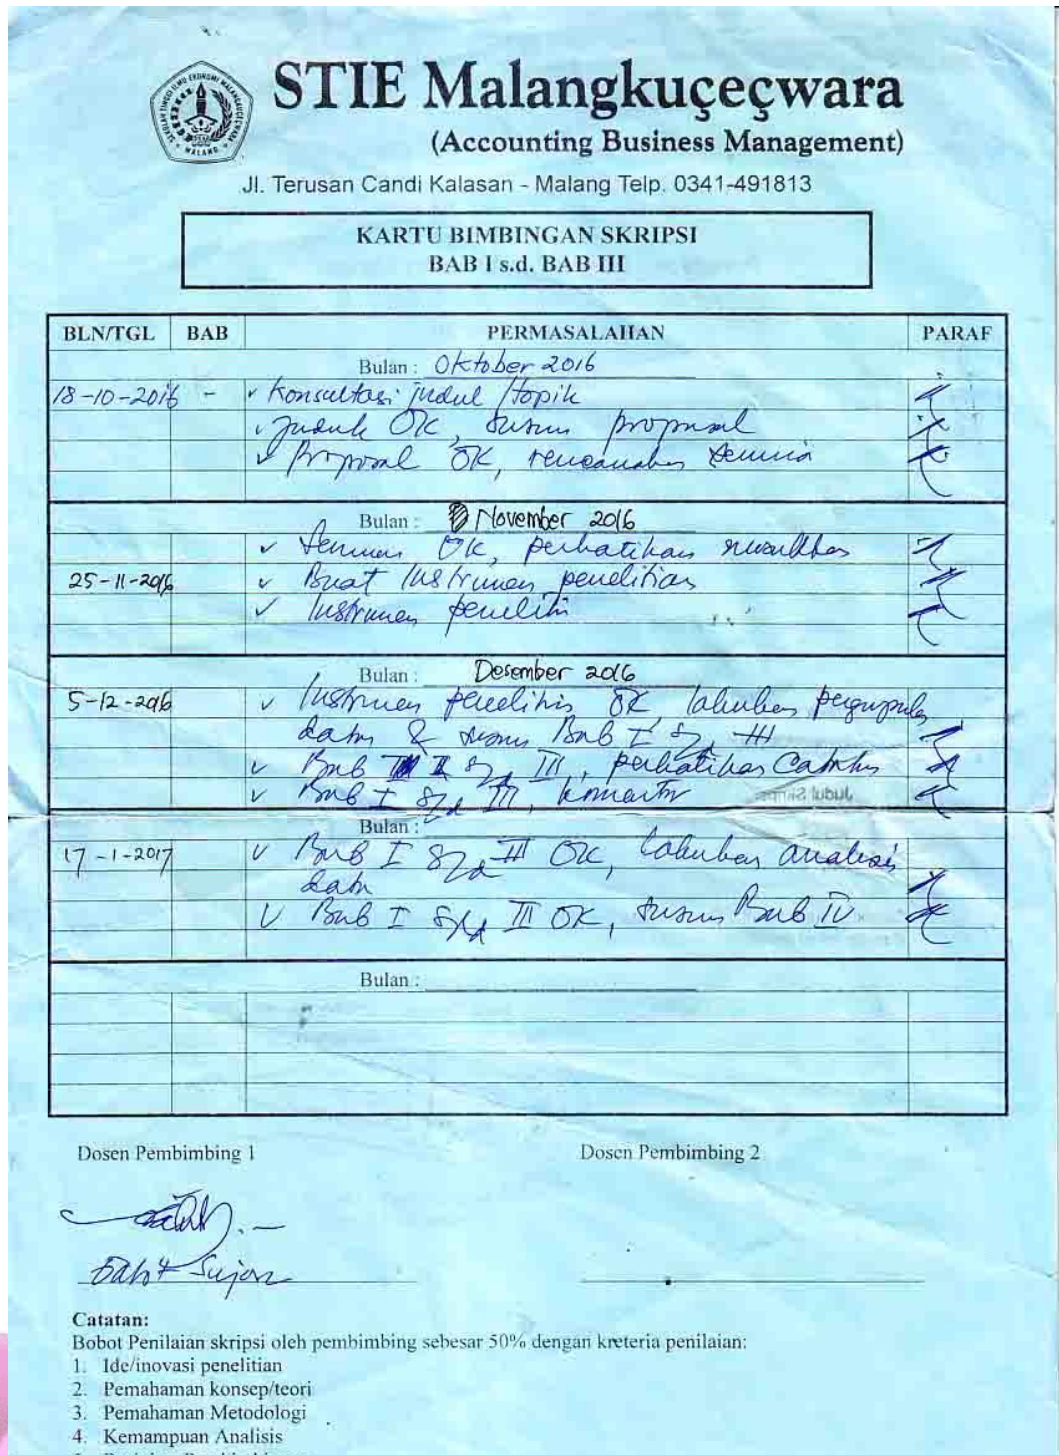 STIE Malangkuçeçwara
(Accounting Business Management)
Jl. Terusan Candi Kalasan - Malang Telp. 0341-491813
KARTU BIMBINGAN SKRIPSI
BAB I s.d. BAB III
BLN/TGL BAB PERMASALAHAN PARAF
Bulan : Oktober 2016
18-10-2016 - ✓ Konsultasi judul / topik
✓ Judul OK, susun proposal
✓ Proposal OK, rencanakan seminar
Bulan : November 2016
✓ Seminar OK, perhatikan
25-11-2016 ✓ Buat Instrumen penelitian
✓ Instrumen peneliti
Bulan : Desember 2016
5-12-2016 ✓ Instrumen penelitian OK, lakukan
data & susun Bab I s/d III
✓ Bab I s/d III, perhatikan Catatan
✓ Bab I s/d III,
Bulan :
17-1-2017 ✓ Bab I s/d III OK, lakukan analisis
data
✓ Bab I s/d III OK, susun Bab IV
Bulan :
Dosen Pembimbing 1 Dosen Pembimbing 2
Catatan:
Bobot Penilaian skripsi oleh pembimbing sebesar 50% dengan kreteria penilaian:
1. Ide/inovasi penelitian
2. Pemahaman konsep/teori
3. Pemahaman Metodologi
4. Kemampuan Analisis